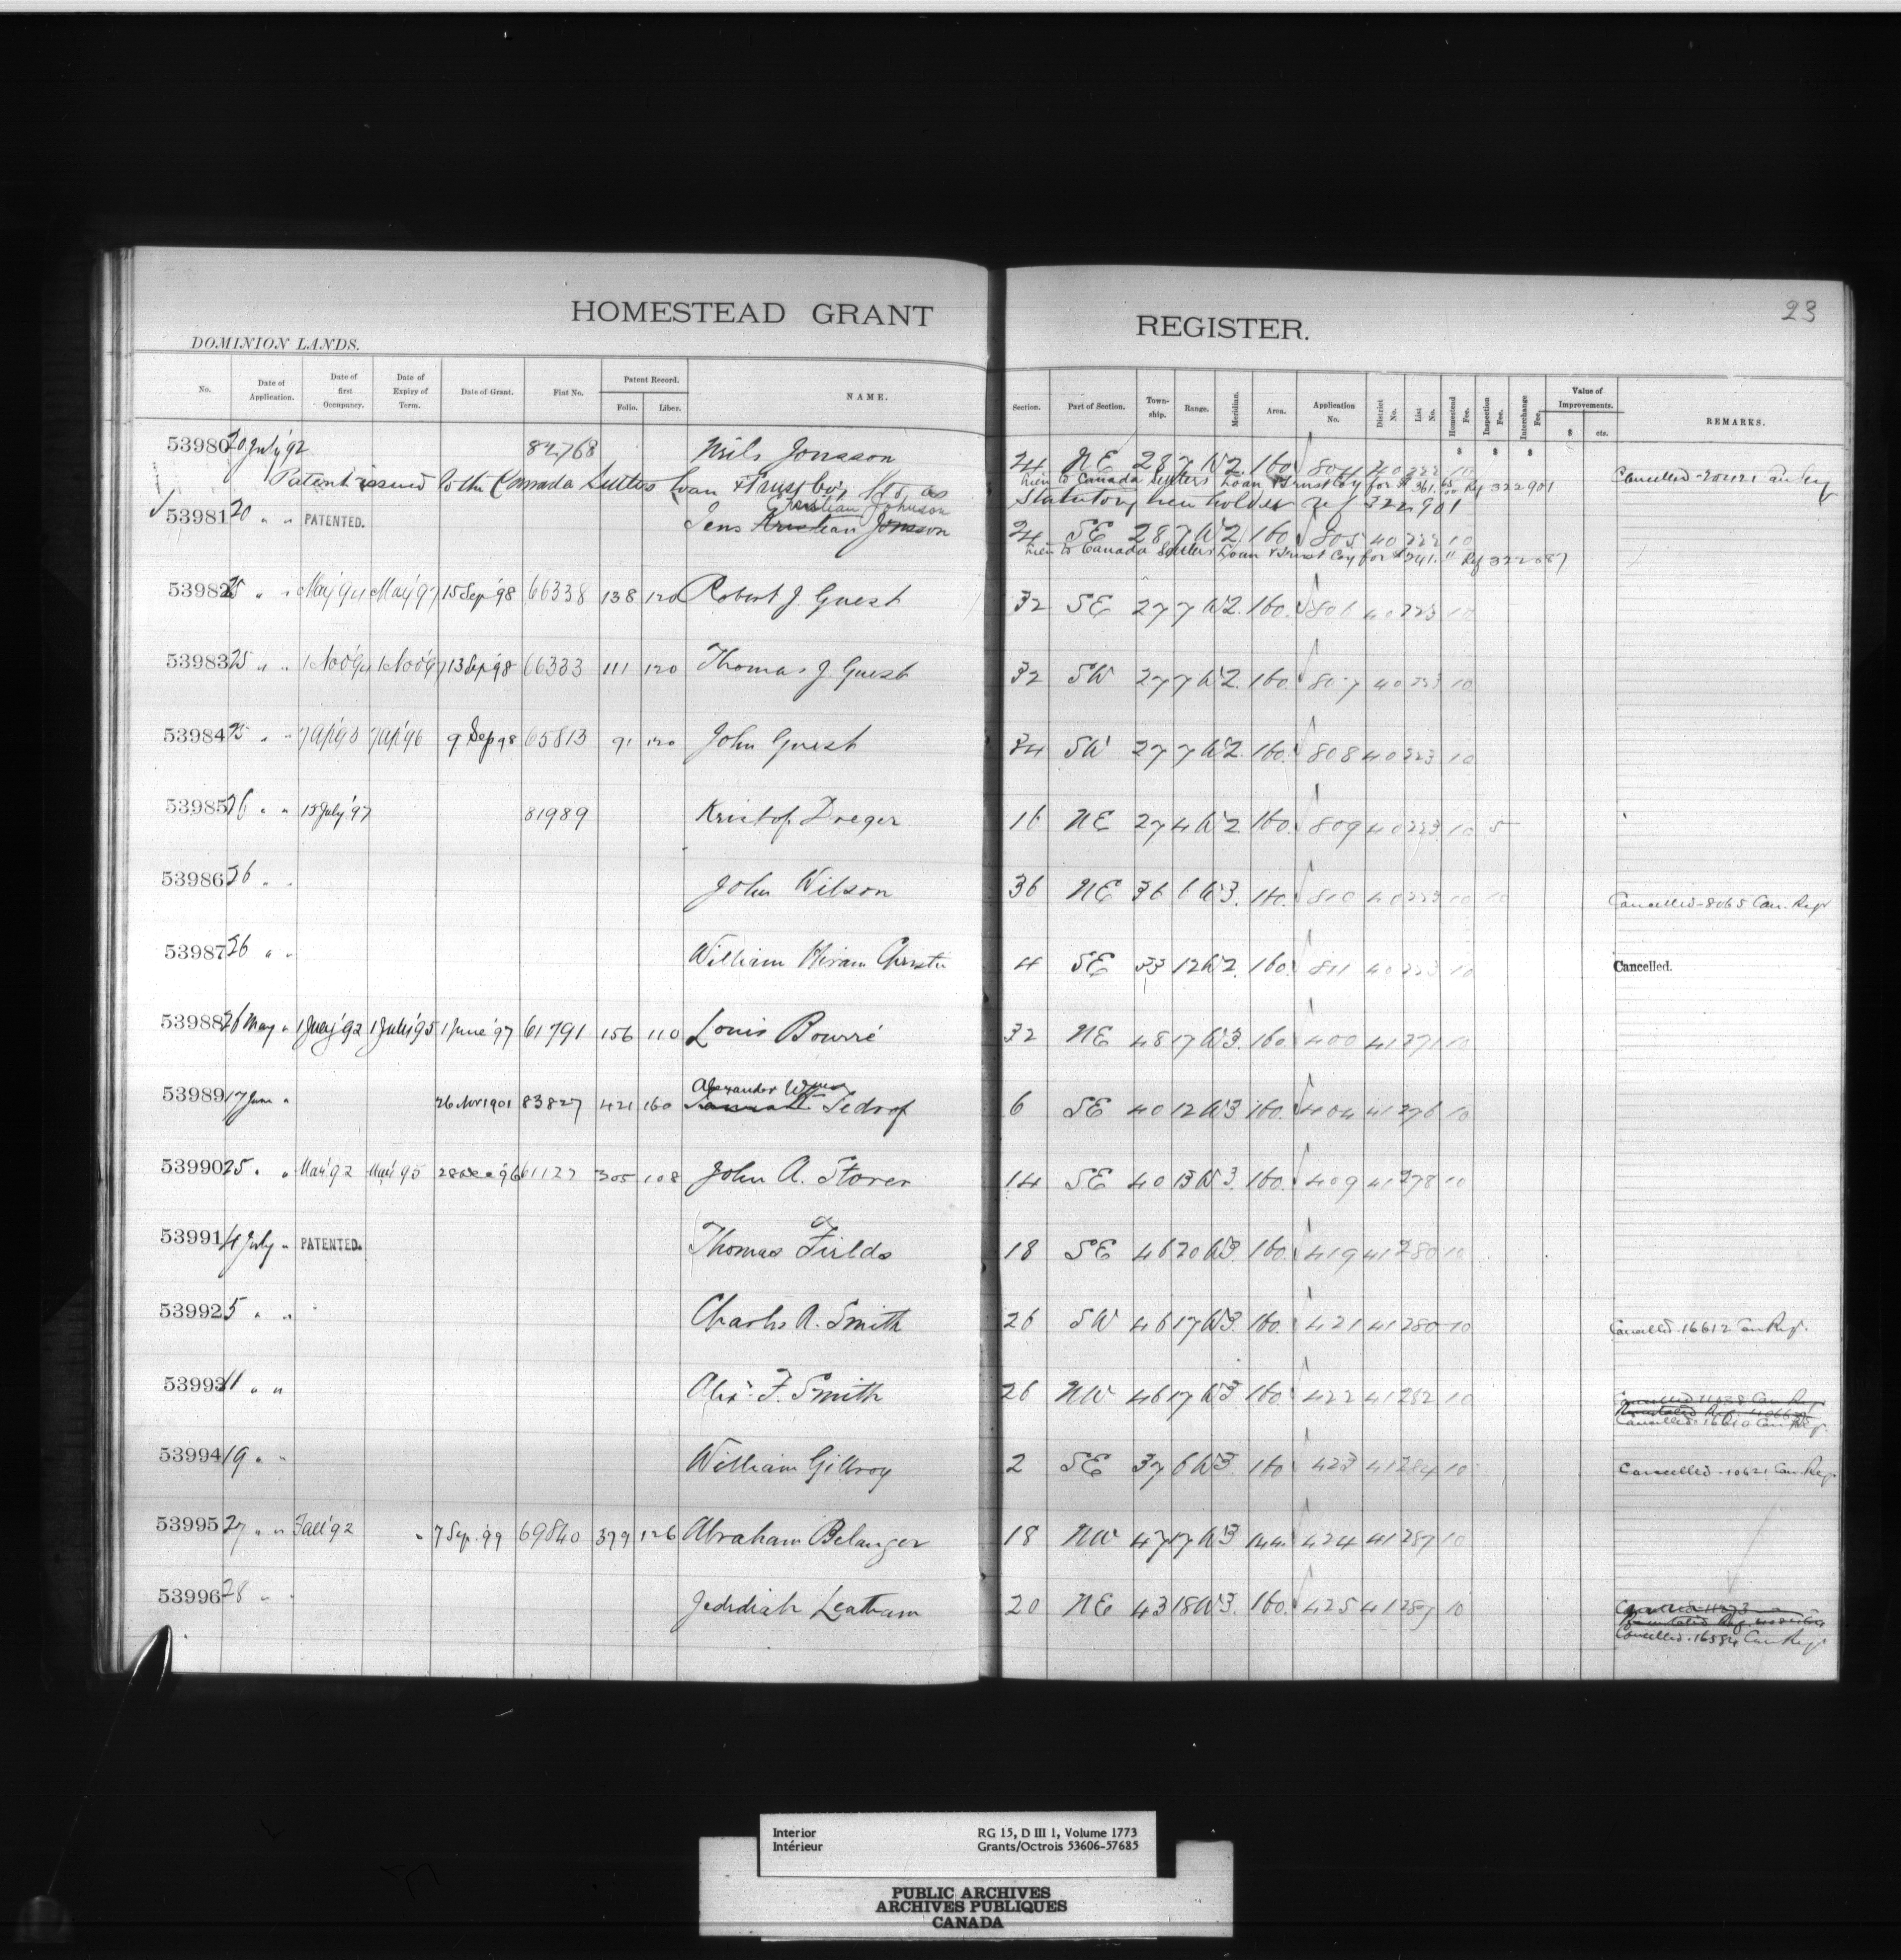 23
HOMESTEAD GRANT REGISTER.
DOMINION LANDS.
No. Date of Application. Date of first Occupancy. Date of Expiry of Term. Date of Grant. Fiat No. Patent Record. Folio. Liber. NAME. Section. Part of Section. Township. Range. Meridian. Area. Application No. District No. List No. Homestead Fee. Inspection Fee. Interchange Fee. Value of Improvements. $ cts. REMARKS.
$ $ $
53980 20 July '92 82768 Nils Jonsson 24 NE 28 7 W2. 160. 804 40 222 10 Cancelled - 20421 Can Reg
Patent issued to the Canada Settlers Loan & Trust Coy, Ltd, as Statutory lien holder Ref 322901
lien to Canada Settlers Loan & Trust Coy for $361. Ref 322901
Christian Johnson
53981 20 " " PATENTED. Jens Jonsson 24 SE 28 7 W2. 160. 805 40 222 10
lien to Canada Settlers Loan & Trust Coy for $341. Ref 322887
53982 25 " " May '94 May '97 15 Sep '98 66338 138 120 Robert J. Guest 32 SE 27 7 W2. 160. 806 40 223 10
53983 25 " " 1 Nov '94 1 Nov '97 13 Sep '98 66333 111 120 Thomas J. Guest 32 SW 27 7 W2. 160. 807 40 223 10
53984 25 " " 7 Ap '93 7 Ap '96 9 Sep 98 65813 91 120 John Guest 34 SW 27 7 W2. 160. 808 40 223 10
53985 26 " " 15 July '97 81989 Kristof Dreger 16 NE 27 4 W2. 160. 809 40 223 10 5
53986 26 " " John Wilson 36 NE 36 6 W3. 160. 810 40 223 10 10 Cancelled - 8065 Can. Regr
53987 26 " " William Hiram Christie 4 SE 33 12 W2. 160. 811 40 223 10 Cancelled.
53988 26 May " 1 July '92 1 July '95 1 June '97 61791 156 110 Louis Bourré 32 NE 48 17 W3. 160. 400 41 271 10
Alexander
53989 17 June " 26 Nov 1901 83827 421 160 Tedrof 6 SE 40 12 W3. 160. 404 41 276 10
53990 25 " " Mar '92 Mar '95 28 Dec '96 61127 305 108 John A. Storer 14 SE 40 13 W3. 160. 409 41 278 10
53991 4 July " PATENTED. Thomas Fields 18 SE 46 20 W3. 160. 419 41 280 10
53992 5 " " Charles A. Smith 26 SW 46 17 W3. 160. 421 41 280 10 Cancelled - 16612 Can Regr.
53993 11 " " Alex. F. Smith 26 NW 46 17 W3. 160. 422 41 282 10
Cancelled - 16610 Can Regr.
53994 19 " " William Gillroy 2 SE 37 6 W3. 160 423 41 284 10 Cancelled - 10621 Can. Reg.
53995 27 " " Fall '92 7 Sep. '99 69840 379 126 Abraham Belanger 18 NW 47 17 W3 144. 424 41 287 10
53996 28 " " Jedediah Leatham 20 NE 43 18 W3. 160. 425 41 287 10
Cancelled - 16584 Can Regr
Interior RG 15, D III 1, Volume 1773
Intérieur Grants/Octrois 53606-57685
PUBLIC ARCHIVES
ARCHIVES PUBLIQUES
CANADA